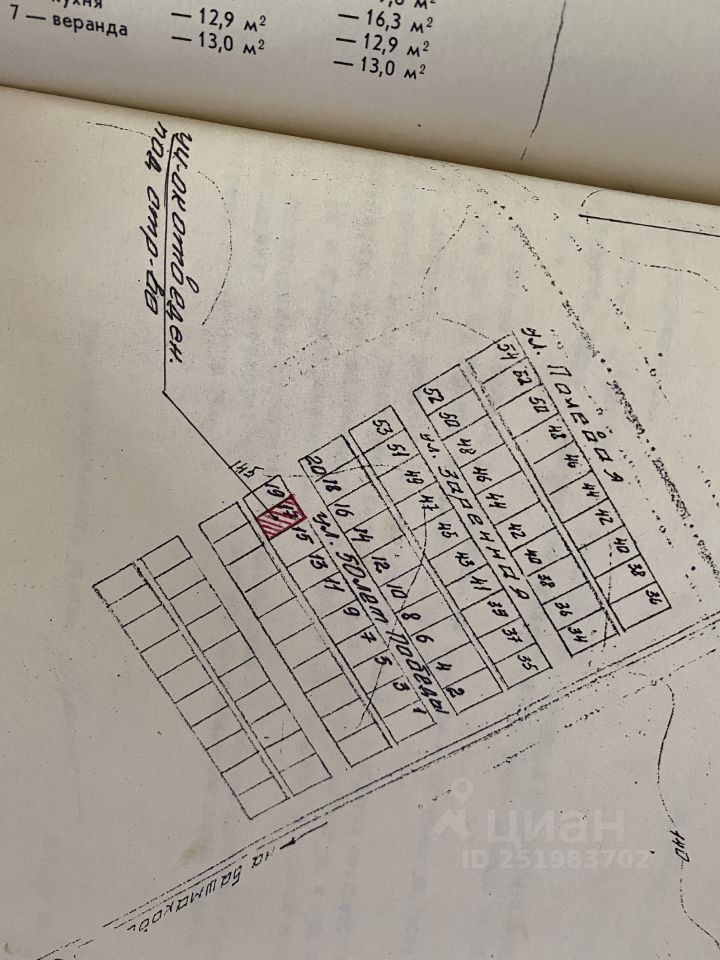 кухня
7 — веранда
— 12,9 м²
— 13,0 м²
— 16,3 м²
— 12,9 м²
— 13,0 м²
уч-ок отведен.
под стр-во
ул. Полевая
54 52 50 48 46 44 42 40 38 36
52 50 48 46 44 42 40 38 36 34
ул. Заречная
53 51 49 47 45 43 41 39 37 35
20 18 16 14 12 10 8 6 4 2
ул. 50 лет Победы
19 17 15 13 11 9 7 5 3 1
145
140
на Башмаково
циан
ID 251983702